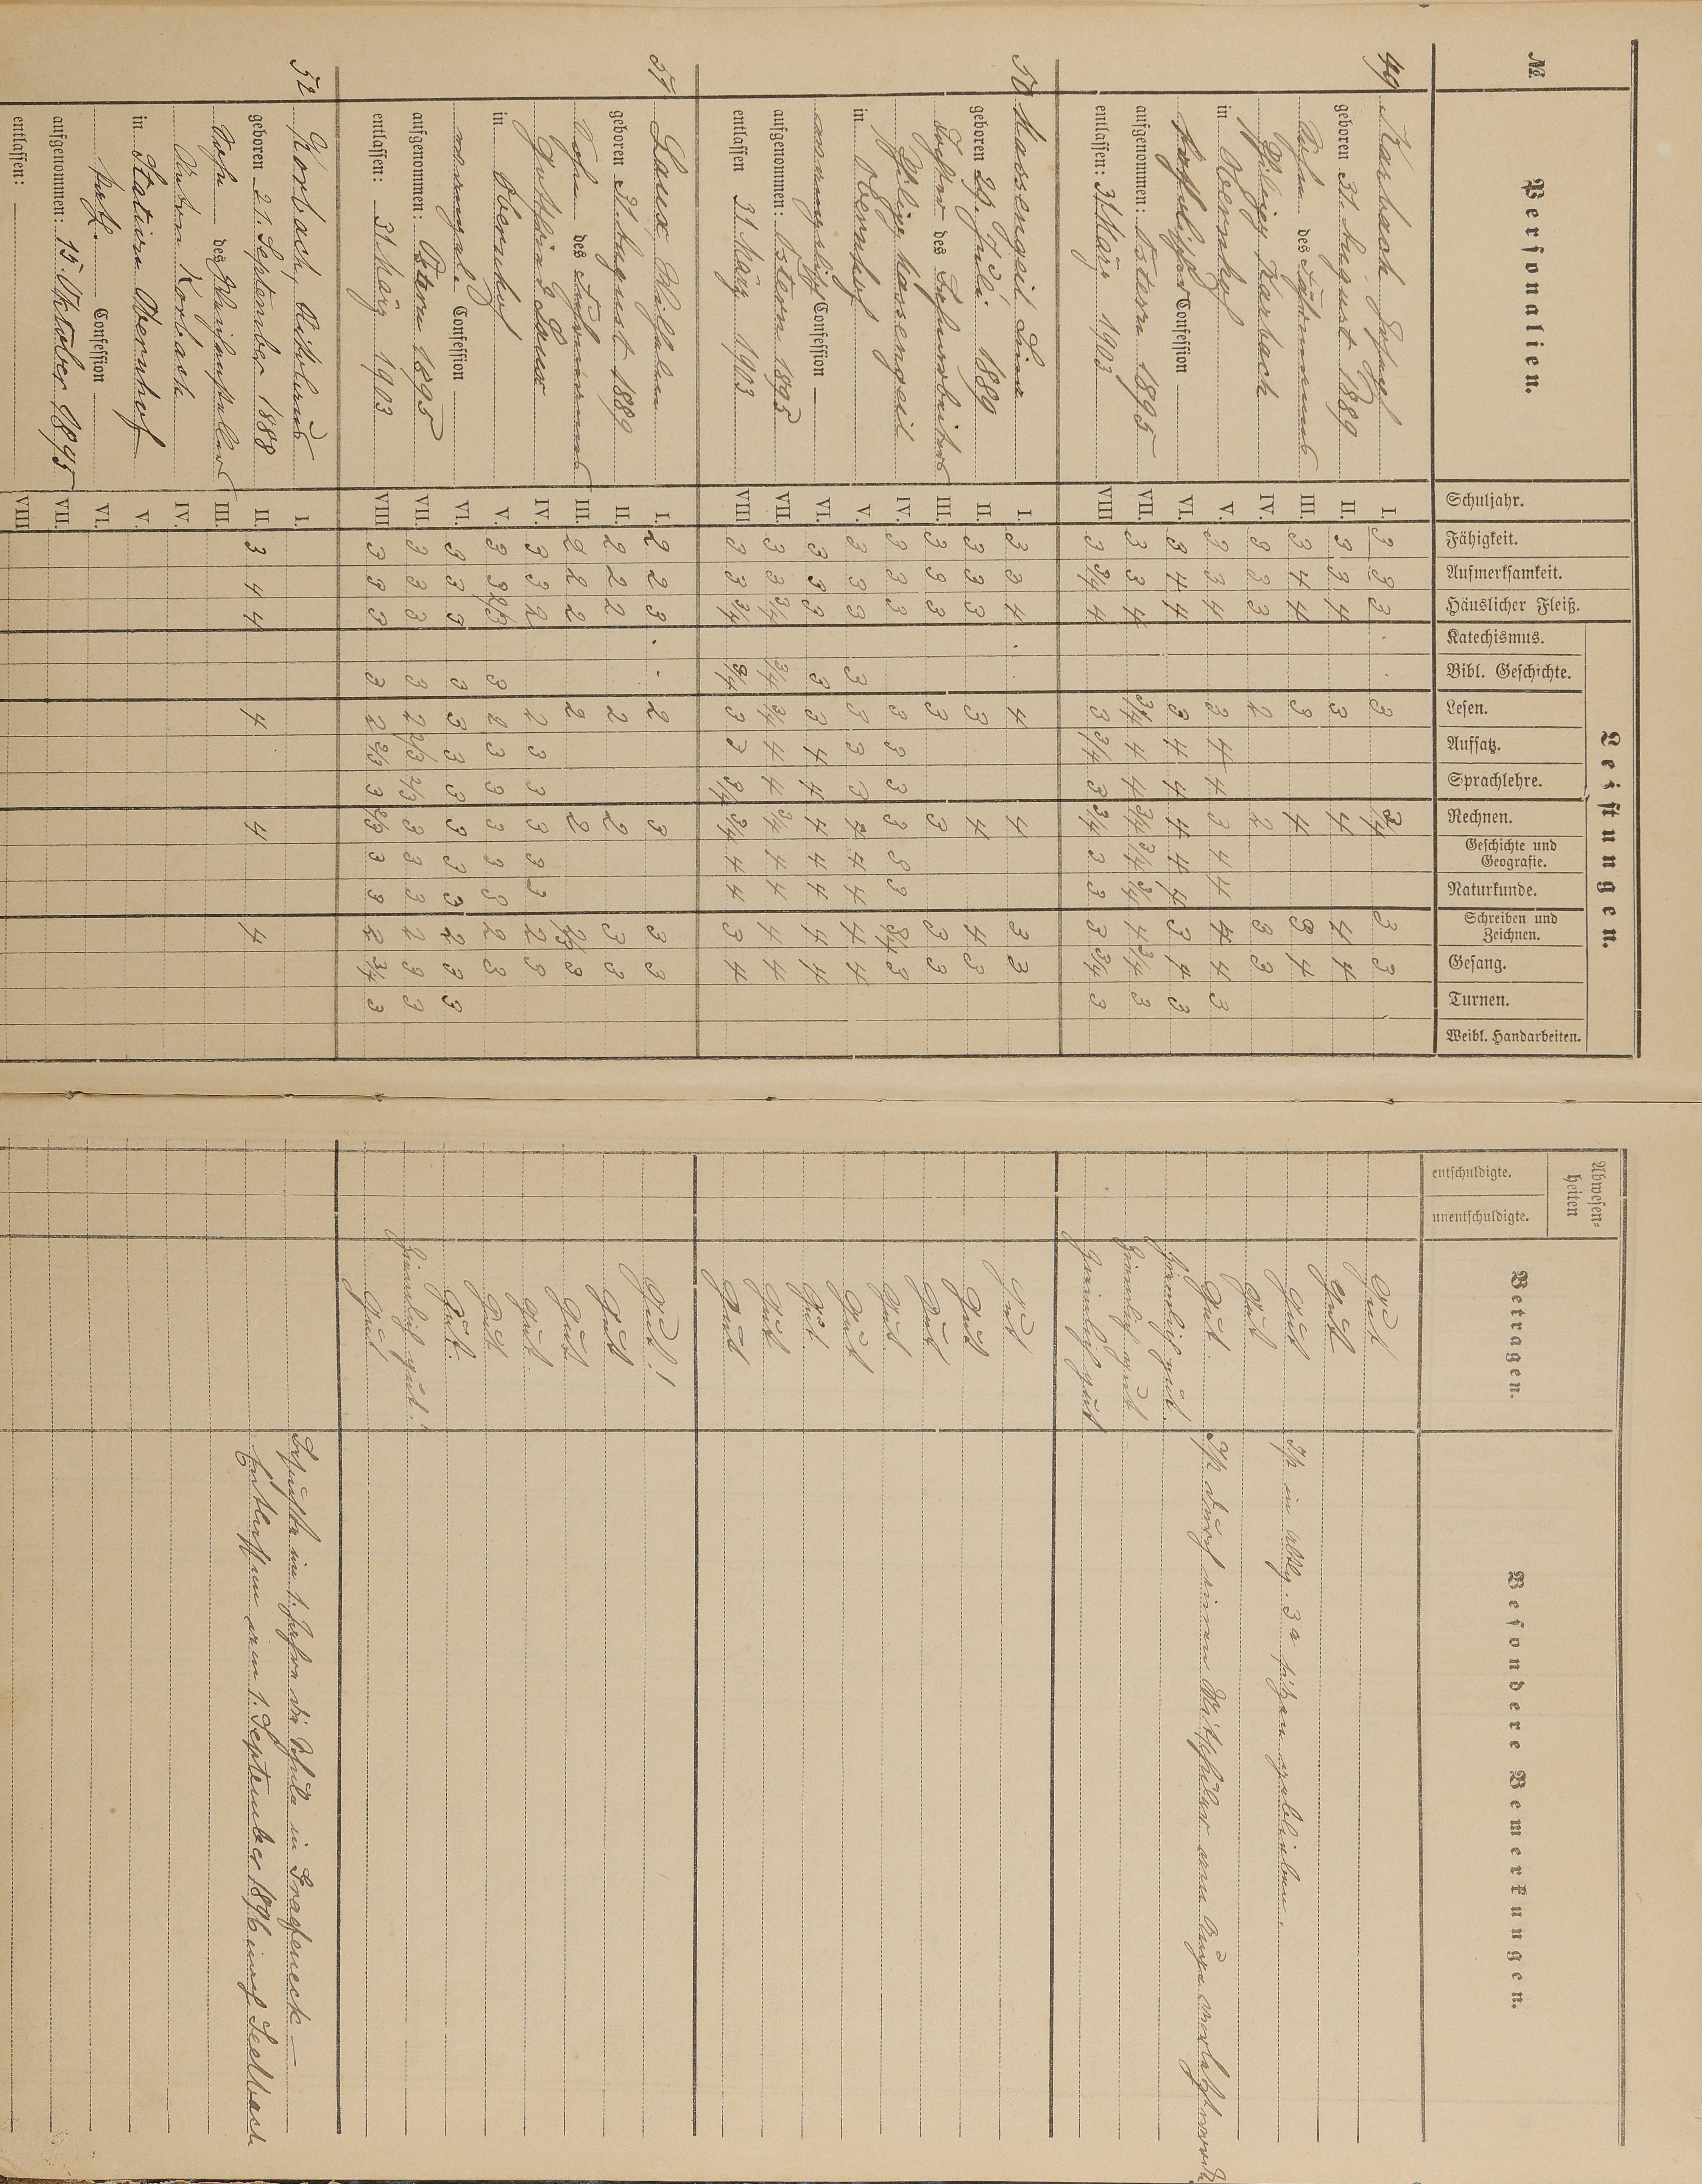 No.
Personalien.
Schuljahr.
Fähigkeit.
Aufmerksamkeit.
Häuslicher Fleiß.
Leistungen.
Katechismus.
Bibl. Geschichte.
Lesen.
Aufsatz.
Sprachlehre.
Rechnen.
Geschichte und
Geografie.
Naturkunde.
Schreiben und
Zeichnen.
Gesang.
Turnen.
Weibl. Handarbeiten.
Abwesen-
heiten
entschuldigte.
unentschuldigte.
Betragen.
Besondere Bemerkungen.
49 Karbach, Josef I. 3 3 3 . . 3 3/4 3 3 Gut
geboren 31. August 1889 II. 3 3 4 3 4 4 4 Gut
Sohn des Fuhrmanns III. 3 4 4 3 4 3 4 Gut Ist in Abtlg. 3a sitzen geblieben.
Philipp Karbach IV. 3 3 3 2 2 3 3 Gut
in Obernhof V. 3 3 4 3 4 4 3 4 4 4 4 3 Gut. Ist durch einen Mitschüler am Auge verletzt word.
katholischer Confession VI. 3 4 4 3 4 4 4 4 4 3 4 3 Ziemlich gut.
aufgenommen: Ostern 1895 VII. 3 3 4 3/4 4 4 3/4 3/4 3/4 4 3/4 3 Ziemlich gut
entlassen: 31. März 1903 VIII 3 3/4 4 3 3/4 3 3/4 3 3 3 3/4 3 Ziemlich gut
50 Massengeil Lina I. 3 3 4 . 4 4 3 3 Gut
geboren 29. Juli 1889 II. 3 3 3 3 4 4 3 Gut
Tochter des III. 3 3 3 3 3 3 3 Gut
Philipp Massengeil IV. 3 3 3 3 3 3 3 3 3 3/4 3 Gut
in Obernhof V. 3 3 3 3 3 3 3 4 4 4 4 4 Gut
evangelisch Confession VI. 3 3 3 3 3 4 4 4 4 4 4 4 Gut.
aufgenommen: Ostern 1895 VII. 3 3 3/4 3/4 3/4 4 4 3/4 4 4 4 4 Gut
entlassen 31. März 1903 VIII 3 3 3/4 3/4 3 3 3/4 3/4 4 4 3 4 Gut
51 Laux, Wilhelm I. 2 2 3 . . 2 3 3 3 Gut!
geboren 31. August 1889 II. 2 2 2 2 2 3 3 Gut
Sohn des Fuhrmanns III. 2 2 2 2 2 2/3 3 Gut
Laux IV. 3 3 2 2 3 3 3 3 3 2 3 Gut.
in Obernhof V. 3 3 2/3 3 2 3 3 3 3 3 2 3 Gut
evangel. Confession VI. 3 3 3 3 3 3 3 3 3 3 2 3 3 Gut.
aufgenommen: Ostern 1895 VII. 3 3 3 3 2 2/3 2/3 3 3 3 2 3 3 Ziemlich gut!
entlassen: 31. März 1903 VIII 3 3 3 3 2 2/3 3 2/3 3 3 2 3/4 3 Gut
52 Korbach, Nikolaus I. Besuchte im 1. Jahre die Schule in Grafeneck –
geboren 21. September 1888 II. 3 4 4 4 4 4 Entlassen am 1. September 1896 nach Seelbach
Sohn des III.
Anton Korbach IV.
in Station Obernhof V.
kath. Confession VI.
aufgenommen: 15. Oktober 1895 VII.
entlassen: VIII